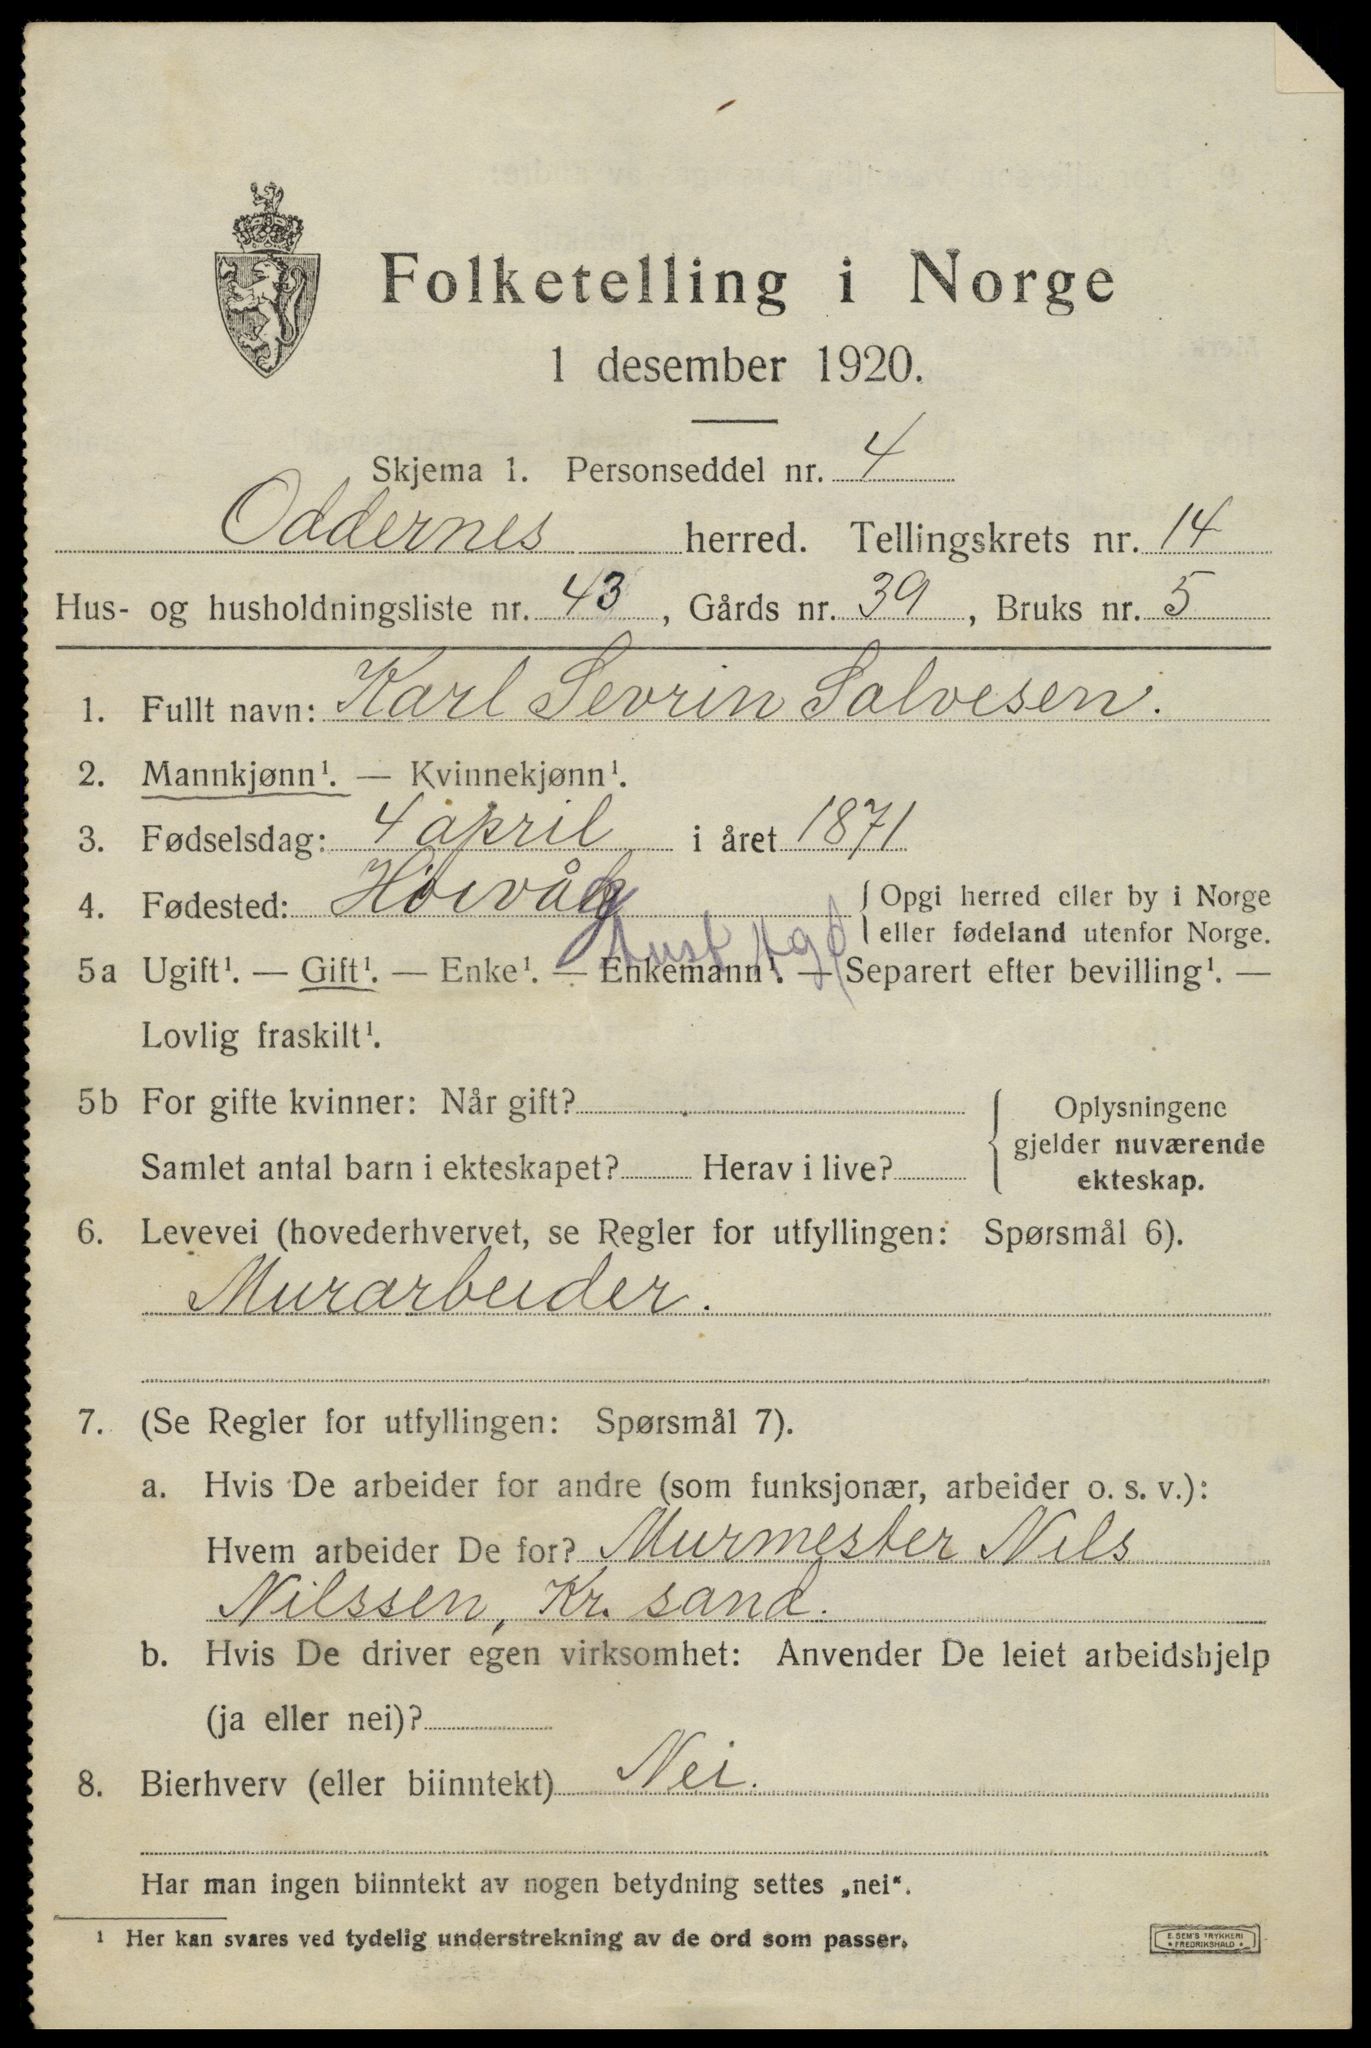 Folketelling i Norge
1 desember 1920.
Skjema 1. Personseddel nr. 4
Oddernes herred. Tellingskrets nr. 14
Hus- og husholdningsliste nr. 43, Gårds nr. 39, Bruks nr. 5
1. Fullt navn: Karl Sevrin Salvesen.
2. Mannkjønn¹. — Kvinnekjønn¹.
3. Fødselsdag: 4 april i året 1871
4. Fødested: Høivåg { Opgi herred eller by i Norge
eller fødeland utenfor Norge.
Aust Agd
5a Ugift¹. — Gift¹. — Enke¹. — Enkemann¹. — Separert efter bevilling¹. —
Lovlig fraskilt¹.
5b For gifte kvinner: Når gift? { Oplysningene
gjelder nuværende
Samlet antal barn i ekteskapet? Herav i live? ekteskap.
6. Levevei (hovederhvervet, se Regler for utfyllingen: Spørsmål 6).
Murarbeider.
7. (Se Regler for utfyllingen: Spørsmål 7).
a. Hvis De arbeider for andre (som funksjonær, arbeider o. s. v.):
Hvem arbeider De for? Murmester Nils
Nilssen, Kr. sand.
b. Hvis De driver egen virksomhet: Anvender De leiet arbeidshjelp
(ja eller nei)?
8. Bierhverv (eller biinntekt) Nei.
Har man ingen biinntekt av nogen betydning settes „nei“.
¹ Her kan svares ved tydelig understrekning av de ord som passer.
E. SEM'S TRYKKERI
* FREDRIKSHALD *